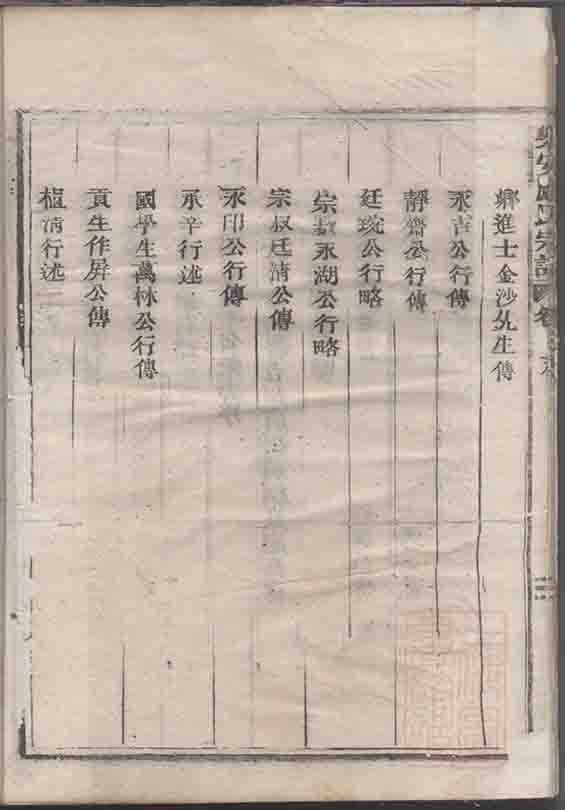 鄉進士金沙先生傳
永吉公行傳
靜齋公行傳
廷琬公行略
宗叔永湖公行略
宗叔廷清公傳
永印公行傳
承辛行述
國學生萬林公行傳
貢生作屏公傳
植清行述
氏宗譜 卷